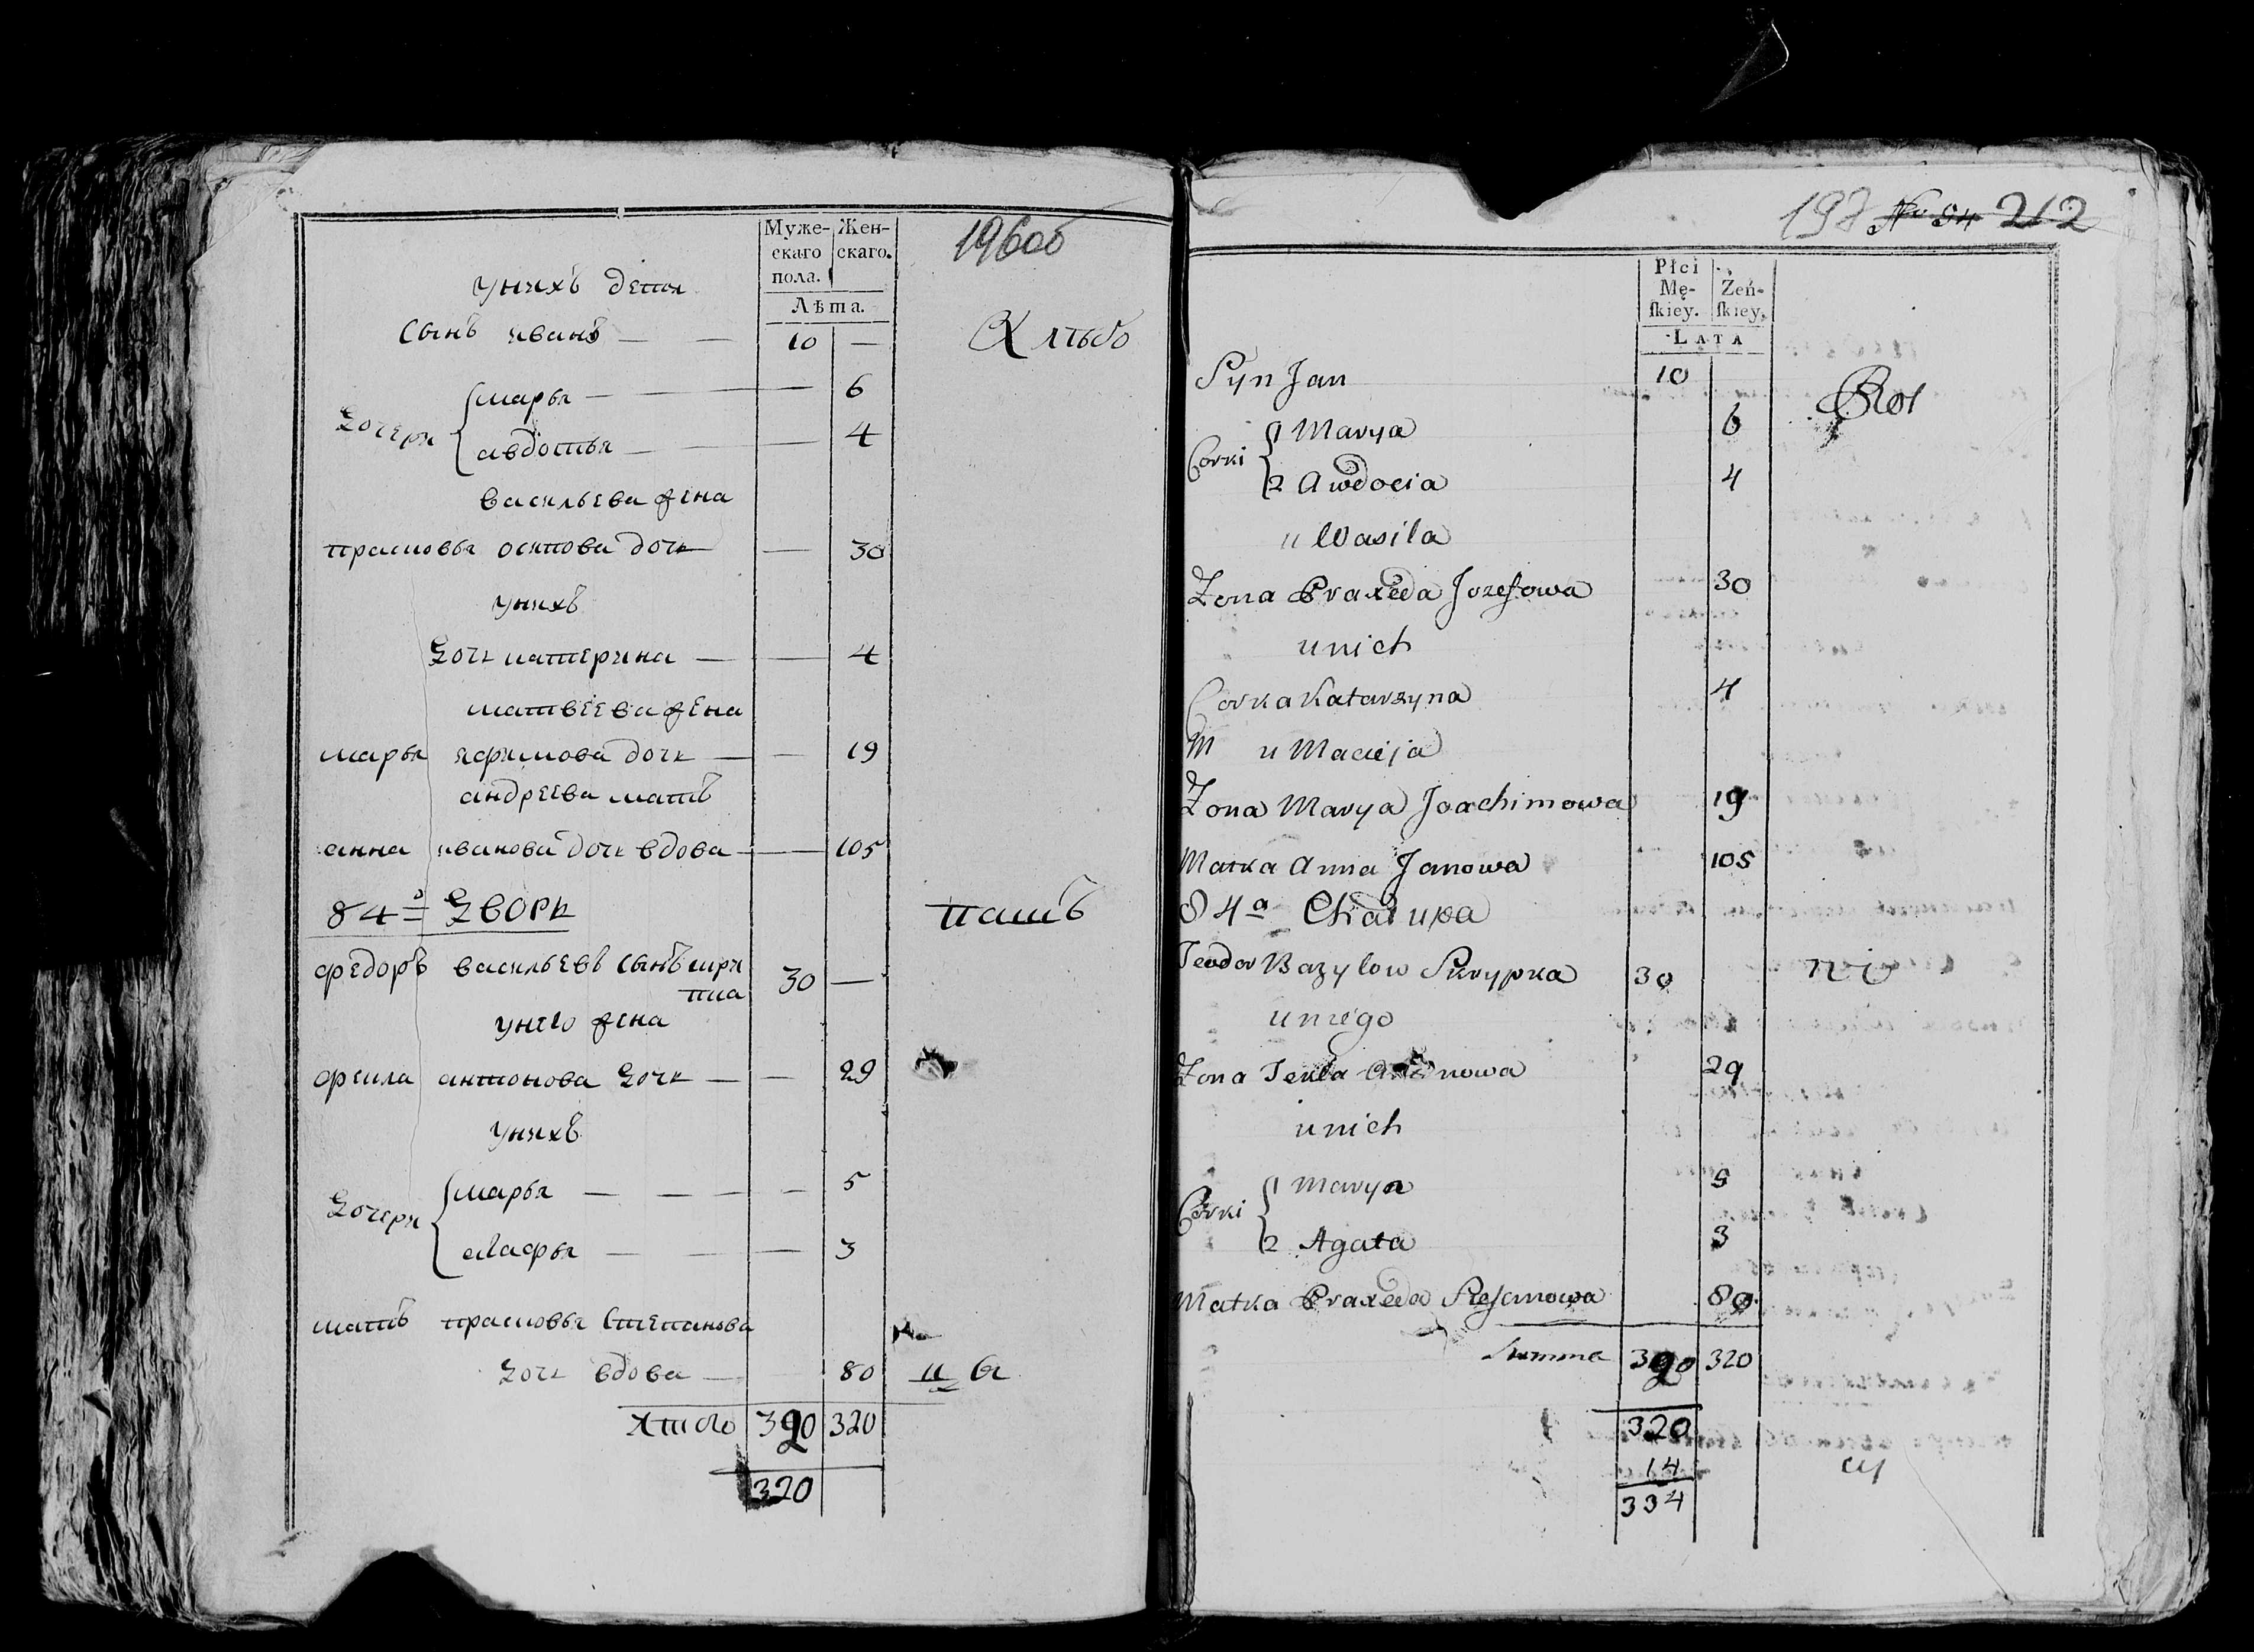 196об
Муже-
скаго
пола.
Жен-
скаго.
Лѣта.
унихъ дети
Сынъ иванъ — — 10 —
дочери
марья — — 6
авдотья — — 4
васильева жена
прасковья осипова дочь — 30
унихъ
дочь катерина — — 4
матвеева жена
марья яфимова дочь — — 19
андреева мать
анна иванова дочь вдова — — 105
84й дворъ
федоръ васильевъ сынъ скри
пка 30 —
унего жена
фекла антонова дочь — — 29
унихъ
дочери
марья — — — — 5
агафья — — — 3
мать прасковья степанова
дочь вдова — 80
итого 320 320
320
198 212
Płci
Mę-
ſkiey.
Żeń-
ſkiey.
LATA
Syn Jan 10
Corki
1 Marya 6
2 Awdocia 4
u Wasila
Zona Praxeda Jozefowa 30
unich
Corka Katarzyna 4
M u Macieja
Zona Marya Joachimowa 19
Matka Anna Janowa 105
84a Chałupa
Teodor Bazylow Skrypka 30
uniego
Zona Tekla 29
unich
Corki
1 Marya 5
2 Agata 3
Matka Praxeda 80
Summa 320 320
320
14
334